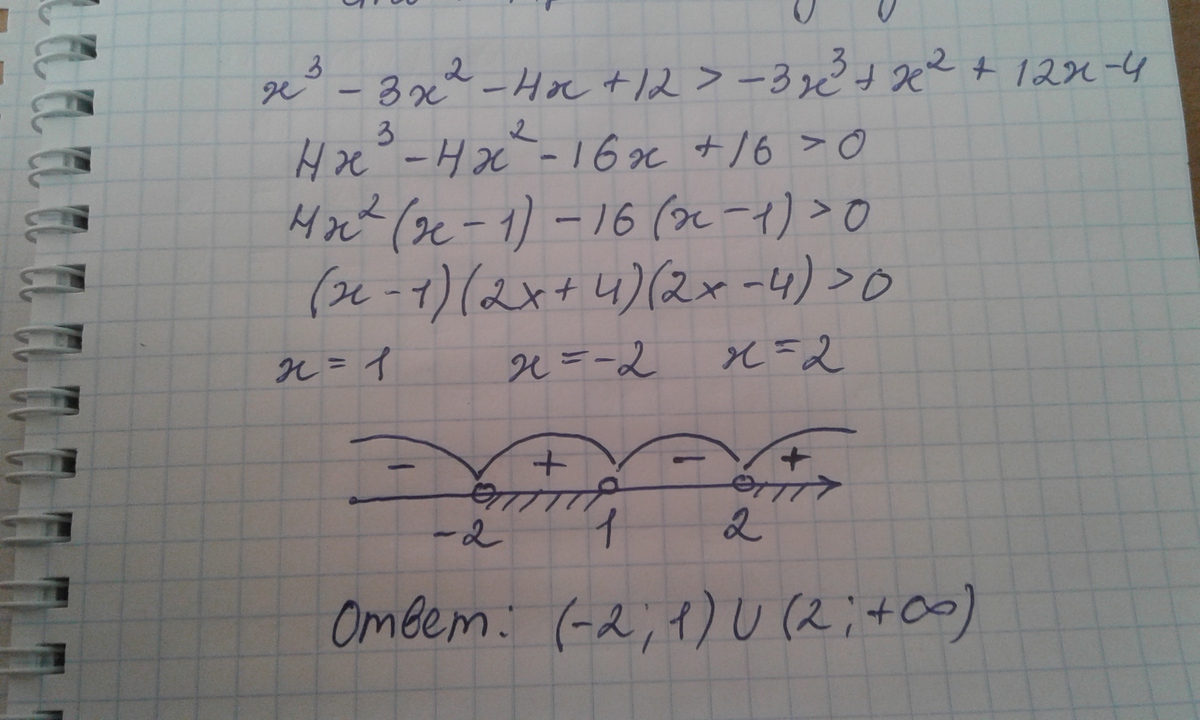 x³ - 3x² - 4x + 12 > -3x³ + x² + 12x - 4
4x³ - 4x² - 16x + 16 > 0
4x² (x - 1) - 16 (x - 1) > 0
(x - 1)(2x + 4)(2x - 4) > 0
x = 1 x = -2 x = 2
- + - +
-2 1 2
Ответ: (-2; 1) ∪ (2; +∞)